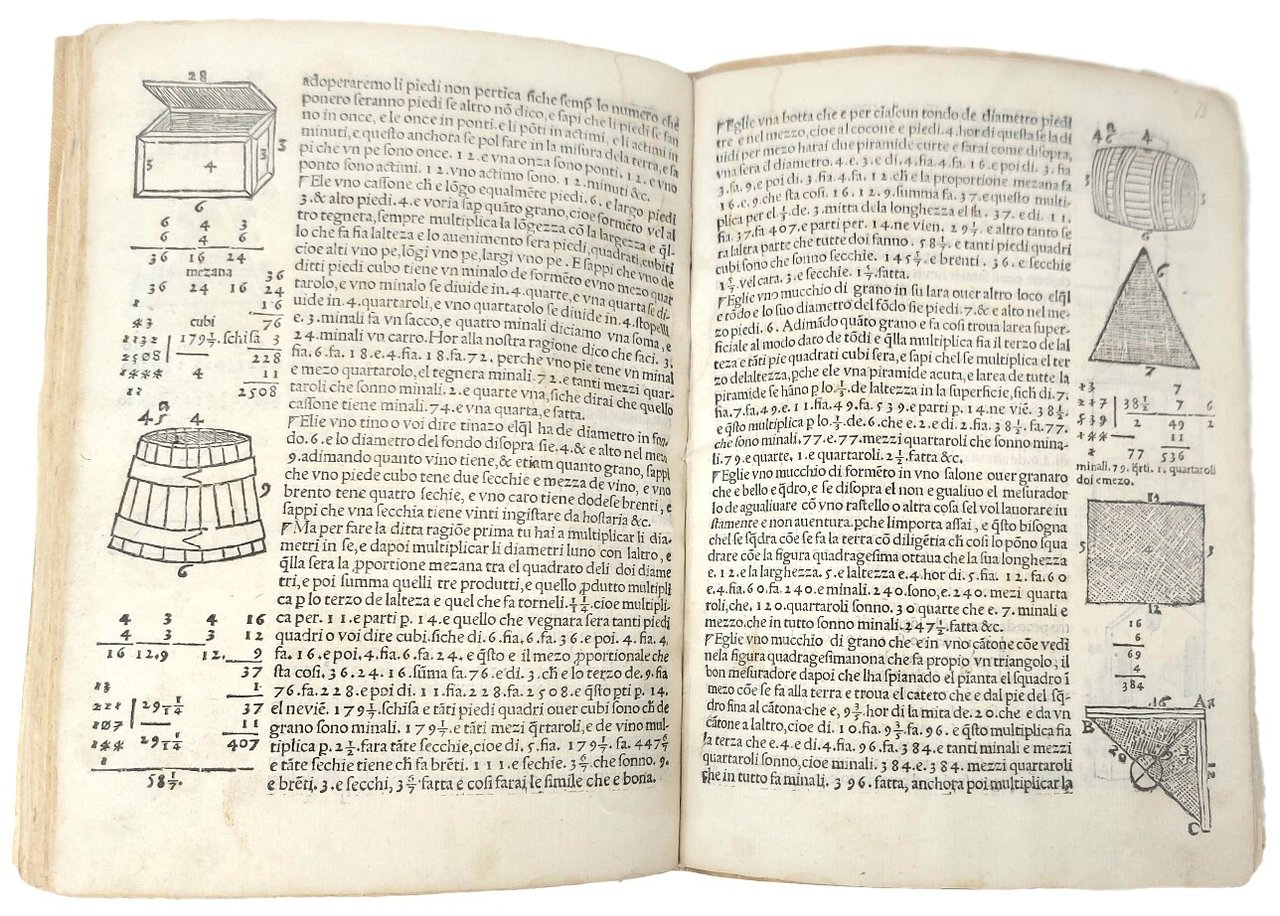 28
3
4
3
3
6
6 4 3
6 4 6
36 16 24
mezana 36
36 24 16 24
16
cubi 76
179 1/7. schisa 3
228
4 11
2508
45
4
9
6
4 3 4 16
4 3 3 12
16 12.9 12. 9
37
1
29 1/14 37
11
29 1/14 407
58 1/7.
adoperaremo li piedi non pertica ſiche ſemp̃ lo numero che
ponero ſeranno piedi ſe altro nõ dico, e ſapi che li piedi ſe fan
no in once, e le once in ponti. e li põti in actimi, e li actimi in
minuti, e queſto anchora ſe pol fare in la miſura de la terra, e ſa
pi che vn pe ſono once. 12. e vna onza ſono ponti. 12. e vno
ponto ſono actimi. 12. vno actimo ſono. 12. minuti &c.
Ele vno caſſone ch̃ e lõgo equalmẽte piedi. 6. e largo piedi
3. & alto piedi. 4. e voria ſap quãto grano, cioe formẽto vel al
tro tegnera, ſempre multiplica la lõgezza cõ la largezza e q̃l-
lo che fa fia lalteza e lo auenimento ſera piedi, quadrati, cubiti
cioe alti vno pe, lõgi vno pe, largi vno pe. E ſappi che vno de
ditti piedi cubo tiene vn minalo de formẽto e vno mezo quar
tarolo, e vno minalo ſe diuide in. 4. quarte, e vna quarta ſe di-
uide in. 4. quartaroli, e vno quartarolo ſe diuide in. 4. ſtopelli
e. 3. minali fa vn ſacco, e quatro minali diciamo vna ſoma, e
24. minali vn carro. Hor alla noſtra ragione dico che faci. 3.
fia. 6. fa. 18. e. 4. fia. 18. fa. 72. perche vno pie tiene vn minal
e mezo quartarolo, el tegnera minali. 72. e tanti mezzi quar-
taroli che ſonno minali. 2. e quarte vna, ſiche dirai che quello
caſſone tiene minali. 74. e vna quarta, e fatta.
Elie vno tino o voi dire tinazo elq̃l ha de diametro in fon-
do. 6. e lo diametro del fondo diſopra ſie. 4. & e alto nel mezo
9. adimando quanto vino tiene, & etiam quanto grano, ſappi
che vno piede cubo tene due ſecchie e mezza de vino, e vno
brento tene quatro ſechie, e vno caro tiene dodeſe brenti, e
ſappi che vna ſecchia tiene vinti ingiſtare da hoſtaria &c.
Ma per fare la ditta ragiõe prima tu hai a multiplicar li dia-
metri in ſe, e dapoi multiplicar li diametri luno con laltro, e
q̃lla ſera la ꝓportione mezana tra el quadrato deli doi diame
tri, e poi ſumma quelli tre produtti, e quello ꝓdutto multipli
ca p lo terzo de lalteza e quel che fa torneli. 11/14. cioe multipli-
ca per. 11. e parti p. 14. e quello che vegnara ſera tanti piedi
quadri o voi dire cubi. ſiche di. 6. fia, 6. fa. 36. e poi. 4. fia. 4,
fa. 16. e poi. 4. fia. 6. fa. 24. e q̃ſto e il mezo ꝓportionale che
ſta coſi. 36. 24. 16. ſũma fa. 76. e di. 3. ch̃ e lo terzo de. 9. fia
76. fa. 228. e poi di. 11. fia. 228. fa. 2508. e q̃ſto pti p. 14.
el neviẽ. 179 1/7. ſchiſa e tãti piedi quadri ouer cubi ſono ch̃ de
grano ſono minali. 179 1/7. e tãti mezi q̃rtaroli, e de vino mul-
tiplica p. 2 1/2. fara tãte ſecchie, cioe di. 5. fia. 179 1/7. fa. 447 6/7
e tãte ſechie tiene ch̃ fa brẽti. 111. e ſechie. 3 6/7. che ſonno. 9.
e brẽti. 3. e ſecchi, 3 6/7 fatta e coſi farai le ſimile che e bona.
Eglie vna botta che e per ciaſcun tondo de diametro piedi
tre e nel mezzo, cioe al cocone e piedi. 4. hor di queſta ſe la di
uidi per mezo harai due piramide curte e farai come diſopra,
vna ſera d diametro. 4. e. 3. e di. 4. fia. 4. fa. 16. e poi di. 3. fia
3. fa. 9. e poi di. 3. fia. 4. fa. 12. ch̃ e la proportione mezana fa
16. e. 9. che ſta coſi. 16. 12. 9. ſumma fa. 37. e queſto multi-
plica per el. 1/3. de. 3. mitta de la longhezza el fa. 37. e di. 11.
fia. 37. fa 407. e parti per. 14. ne vien. 29 1/14. e altro tanto ſe
ra laltra parte che tutte doi fanno. 58 1/7. e tanti piedi quadri
cubi ſono che ſonno ſecchie. 145 5/7. e brenti. 36. e ſecchie
1 5/7. vel cara. 3. e ſecchie. 1 5/7. fatta.
Eglie vno mucchio di grano in ſu lara ouer altro loco elq̃l
e tõdo e lo ſuo diametro del fõdo ſie piedi. 7. & e alto nel me-
zo piedi. 6. Adimãdo quãto grano e fa coſi troua larea ſuper-
ficiale al modo dato de tõdi e q̃lla multiplica fia il terzo de lal
teza e tãti pie quadrati cubi ſera, e ſapi chel ſe multiplica el ter
zo delaltezza, pche ele vna piramide acuta, e larea de tutte la
piramide ſe hãno p lo. 1/3. de laltezza in la ſuperficie, ſich di. 7.
fia. 7. fa. 49. e. 11. fia. 49. fa. 539. e parti p. 14. ne viẽ. 38 1/2.
e q̃ſto multiplica p lo. 1/3. de. 6. che e. 2. e di. 2. fia. 38 1/2. fa. 77.
che ſono minali, 77. e 77. mezzi quartaroli che ſonno mina-
li. 79. e quarte. 1. e quartaroli. 2 1/2. fatta &c.
Eglie vno mucchio di formẽto in vno ſalone ouer granaro
che e bello e q̃dro, e ſe diſopra el non e gualiuo el meſurador
lo de agualiuare cõ vno raſtello o altra coſa ſel vol lauorare iu
ſtamente e non auentura. pche limporta aſſai, e q̃ſto biſogna
chel ſe ſq̃dra cõe ſe fa la terra cõ diligẽtia ch̃ coſi lo põno ſqua
drare cõe la figura quadrageſima ottaua che la ſua longhezza
e. 12. e la larghezza. 5. e laltezza e. 4. hor di. 5. fia. 12. fa. 60
e. 4. fia. 60. fa. 240. e minali. 240. ſono, e. 240. mezi quarta
roli, che, 120. quartaroli ſonno. 30 quarte che e. 7. minali e
mezzo. che in tutto ſonno minali. 247 1/2. fatta &c.
Eglie vno mucchio di grano che e in vno cãtone cõe vedi
nela figura quadrageſimanona che fa propio vn triangolo, il
bon meſuradore dapoi che lha ſpianado el pianta el ſquadro ĩ
mezo cõe ſe fa alla terra e troua el cateto che e dal pie del ſq̃-
dro fina al cãtona che e, 9 3/5. hor di la mita de. 20. che e da vn
cãtone a laltro, cioe di. 10. fia. 9 3/5. fa. 96. e q̃ſto multiplica fia
la terza che e. 4. e di. 4. fia. 96. fa. 384. e tanti minali e mezzi
quartaroli ſonno, cioe minali. 384. e. 384. mezzi quartaroli
che in tutto fa minali. 396. fatta, anchora poi multiplicar la
46
4
3
3
6
6
7
7
38 1/2 7 6
539 2 49 2
11
77 536
minali. 79. q̃rti. 1. quartaroli
doi e mezo.
12
5 4 5
12
16
6
69
4
384
.16 A
B
20
12
C